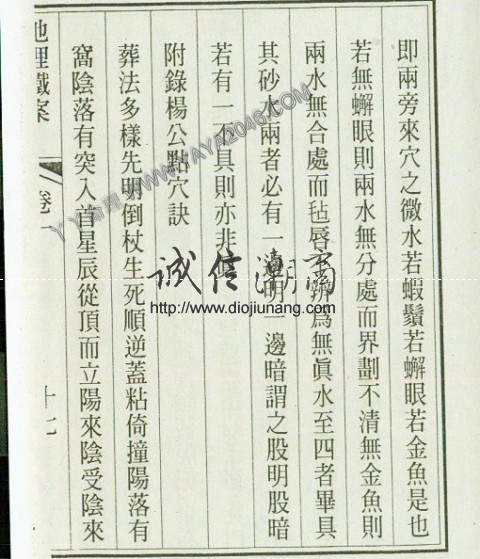 即兩旁來穴之微水若蝦鬚若蠏眼若金魚是也
若無蠏眼則兩水無分處而界劃不清無金魚則
兩水無合處而毡辱辨爲無眞水至四者畢具
其砂水兩者必有一邊明一邊暗謂之股明股暗
若有一不具則亦非
附錄楊公點穴訣
葬法多樣先明倒杖生死順逆蓋粘倚撞陽落有
窩陰落有突入首星辰從頂而立陽來陰受陰來
地理鐵案
卷一
十七
誠信潮商
http://www.diojiunang.com
WWW.YAYA2046.COM